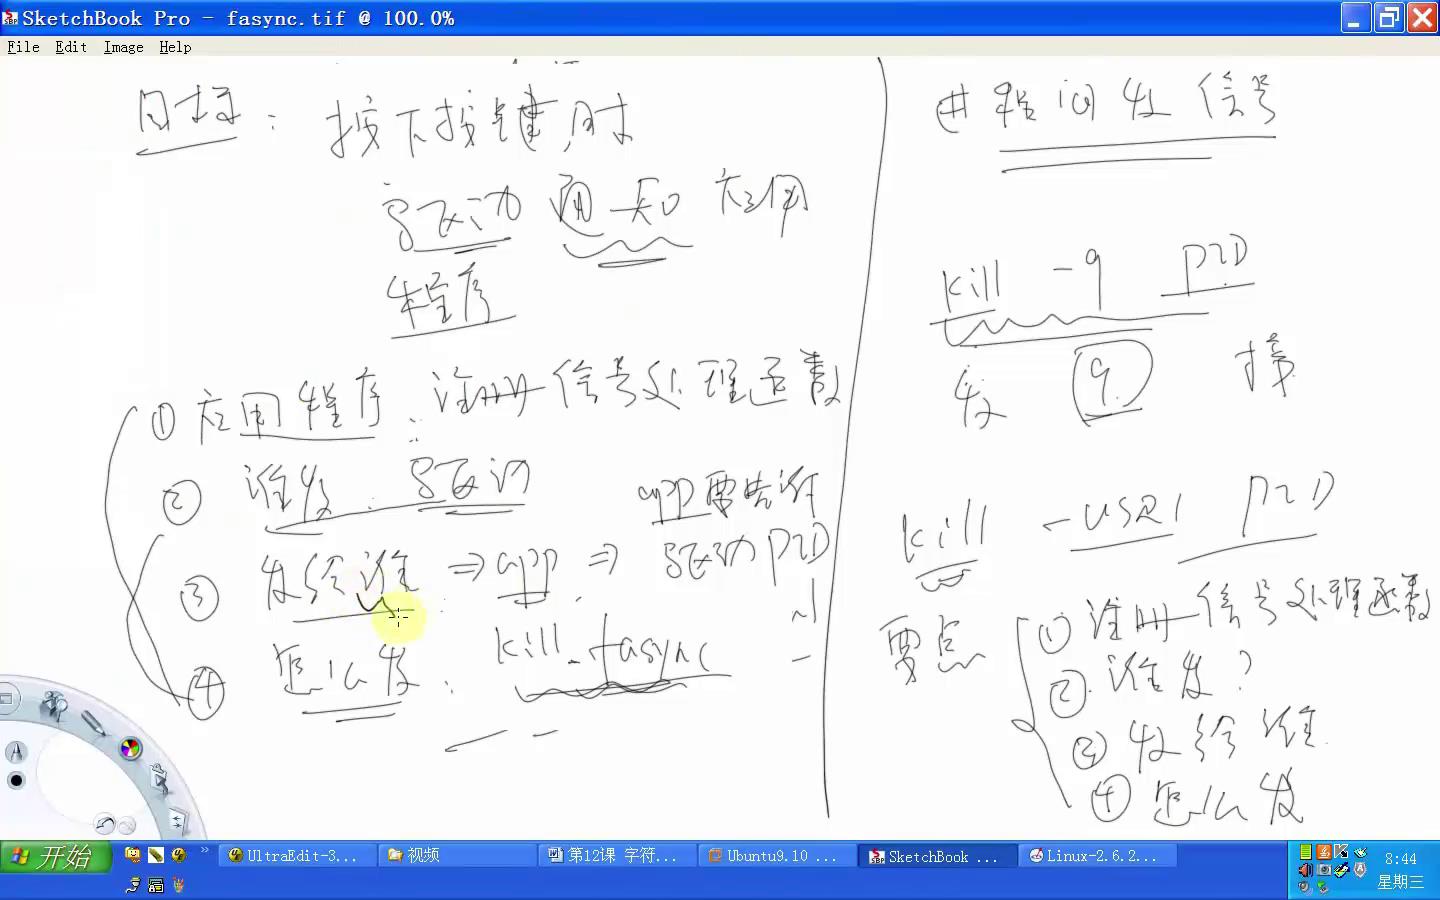 SketchBook Pro - fasync.tif @ 100.0%
File Edit Image Help
目标: 按下按键时
驱动 通知 应用
程序
① 应用程序: 注册信号处理函数
② 谁发: 驱动
③ 发给谁 ⇒ app ⇒ app要告诉
驱动PID
④ 怎么发: kill_fasync
进程间发信号
kill -9 PID
发 9 接
kill -USR1 PID
要点 ① 注册信号处理函数
② 谁发?
③ 发给谁
④ 怎么发
开始 UltraEdit-3... 视频 第12课 字符... Ubuntu9.10 ... SketchBook ... Linux-2.6.2... 8:44
星期三